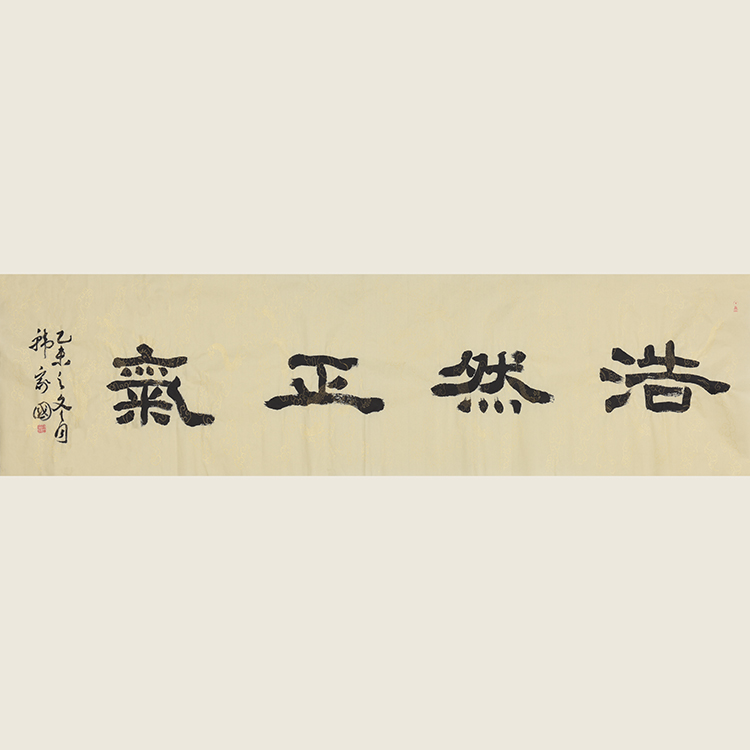 浩然正氣
乙未之冬月
韩家國